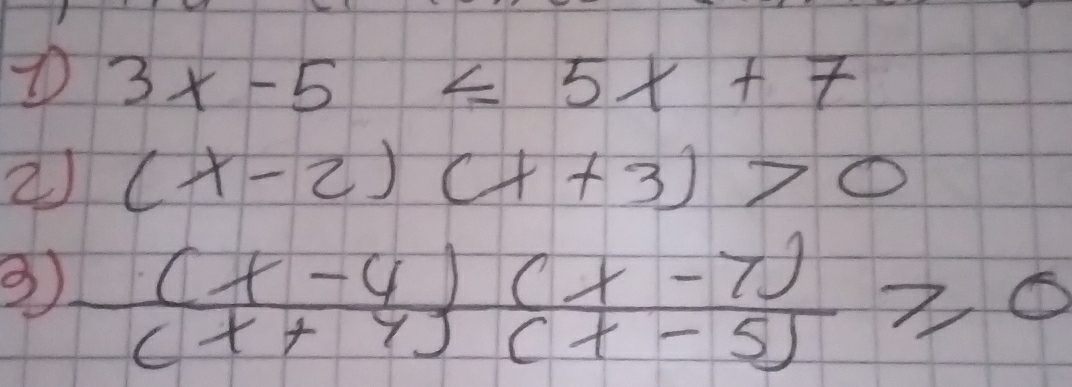 1) 3x - 5 ≤ 5x + 7
2) (x - 2) (x + 3) > 0
3) (x - 4) (x - 7)
(x + 4) (x - 5) ≥ 0